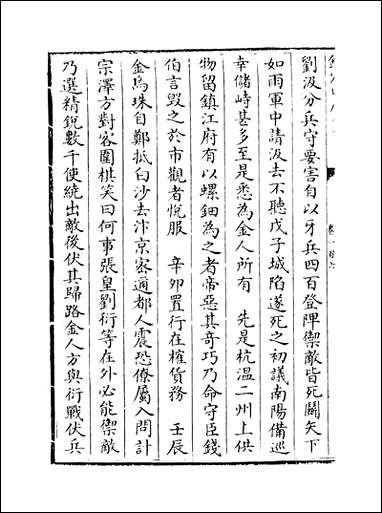 劉汲分兵守要害自以牙兵四百登陴禦敵皆死鬭矢下
如雨軍中請汲去不聽戊子城陷遂死之初議南陽備巡
幸儲峙甚多至是悉為金人所有　先是杭温二州上供
物留鎮江府有以螺鈿為之者帝惡其奇巧乃命守臣錢
伯言毁之於市觀者悅服　辛卯置行在榷貨務　壬辰
金烏珠自鄭抵白沙去汴京密邇都人震恐僚屬入問計
宗澤方對客圍棋笑曰何事張皇劉衍等在外必能禦敵
乃選精銳數千使繞出敵後伏其歸路金人方與衍戰伏兵